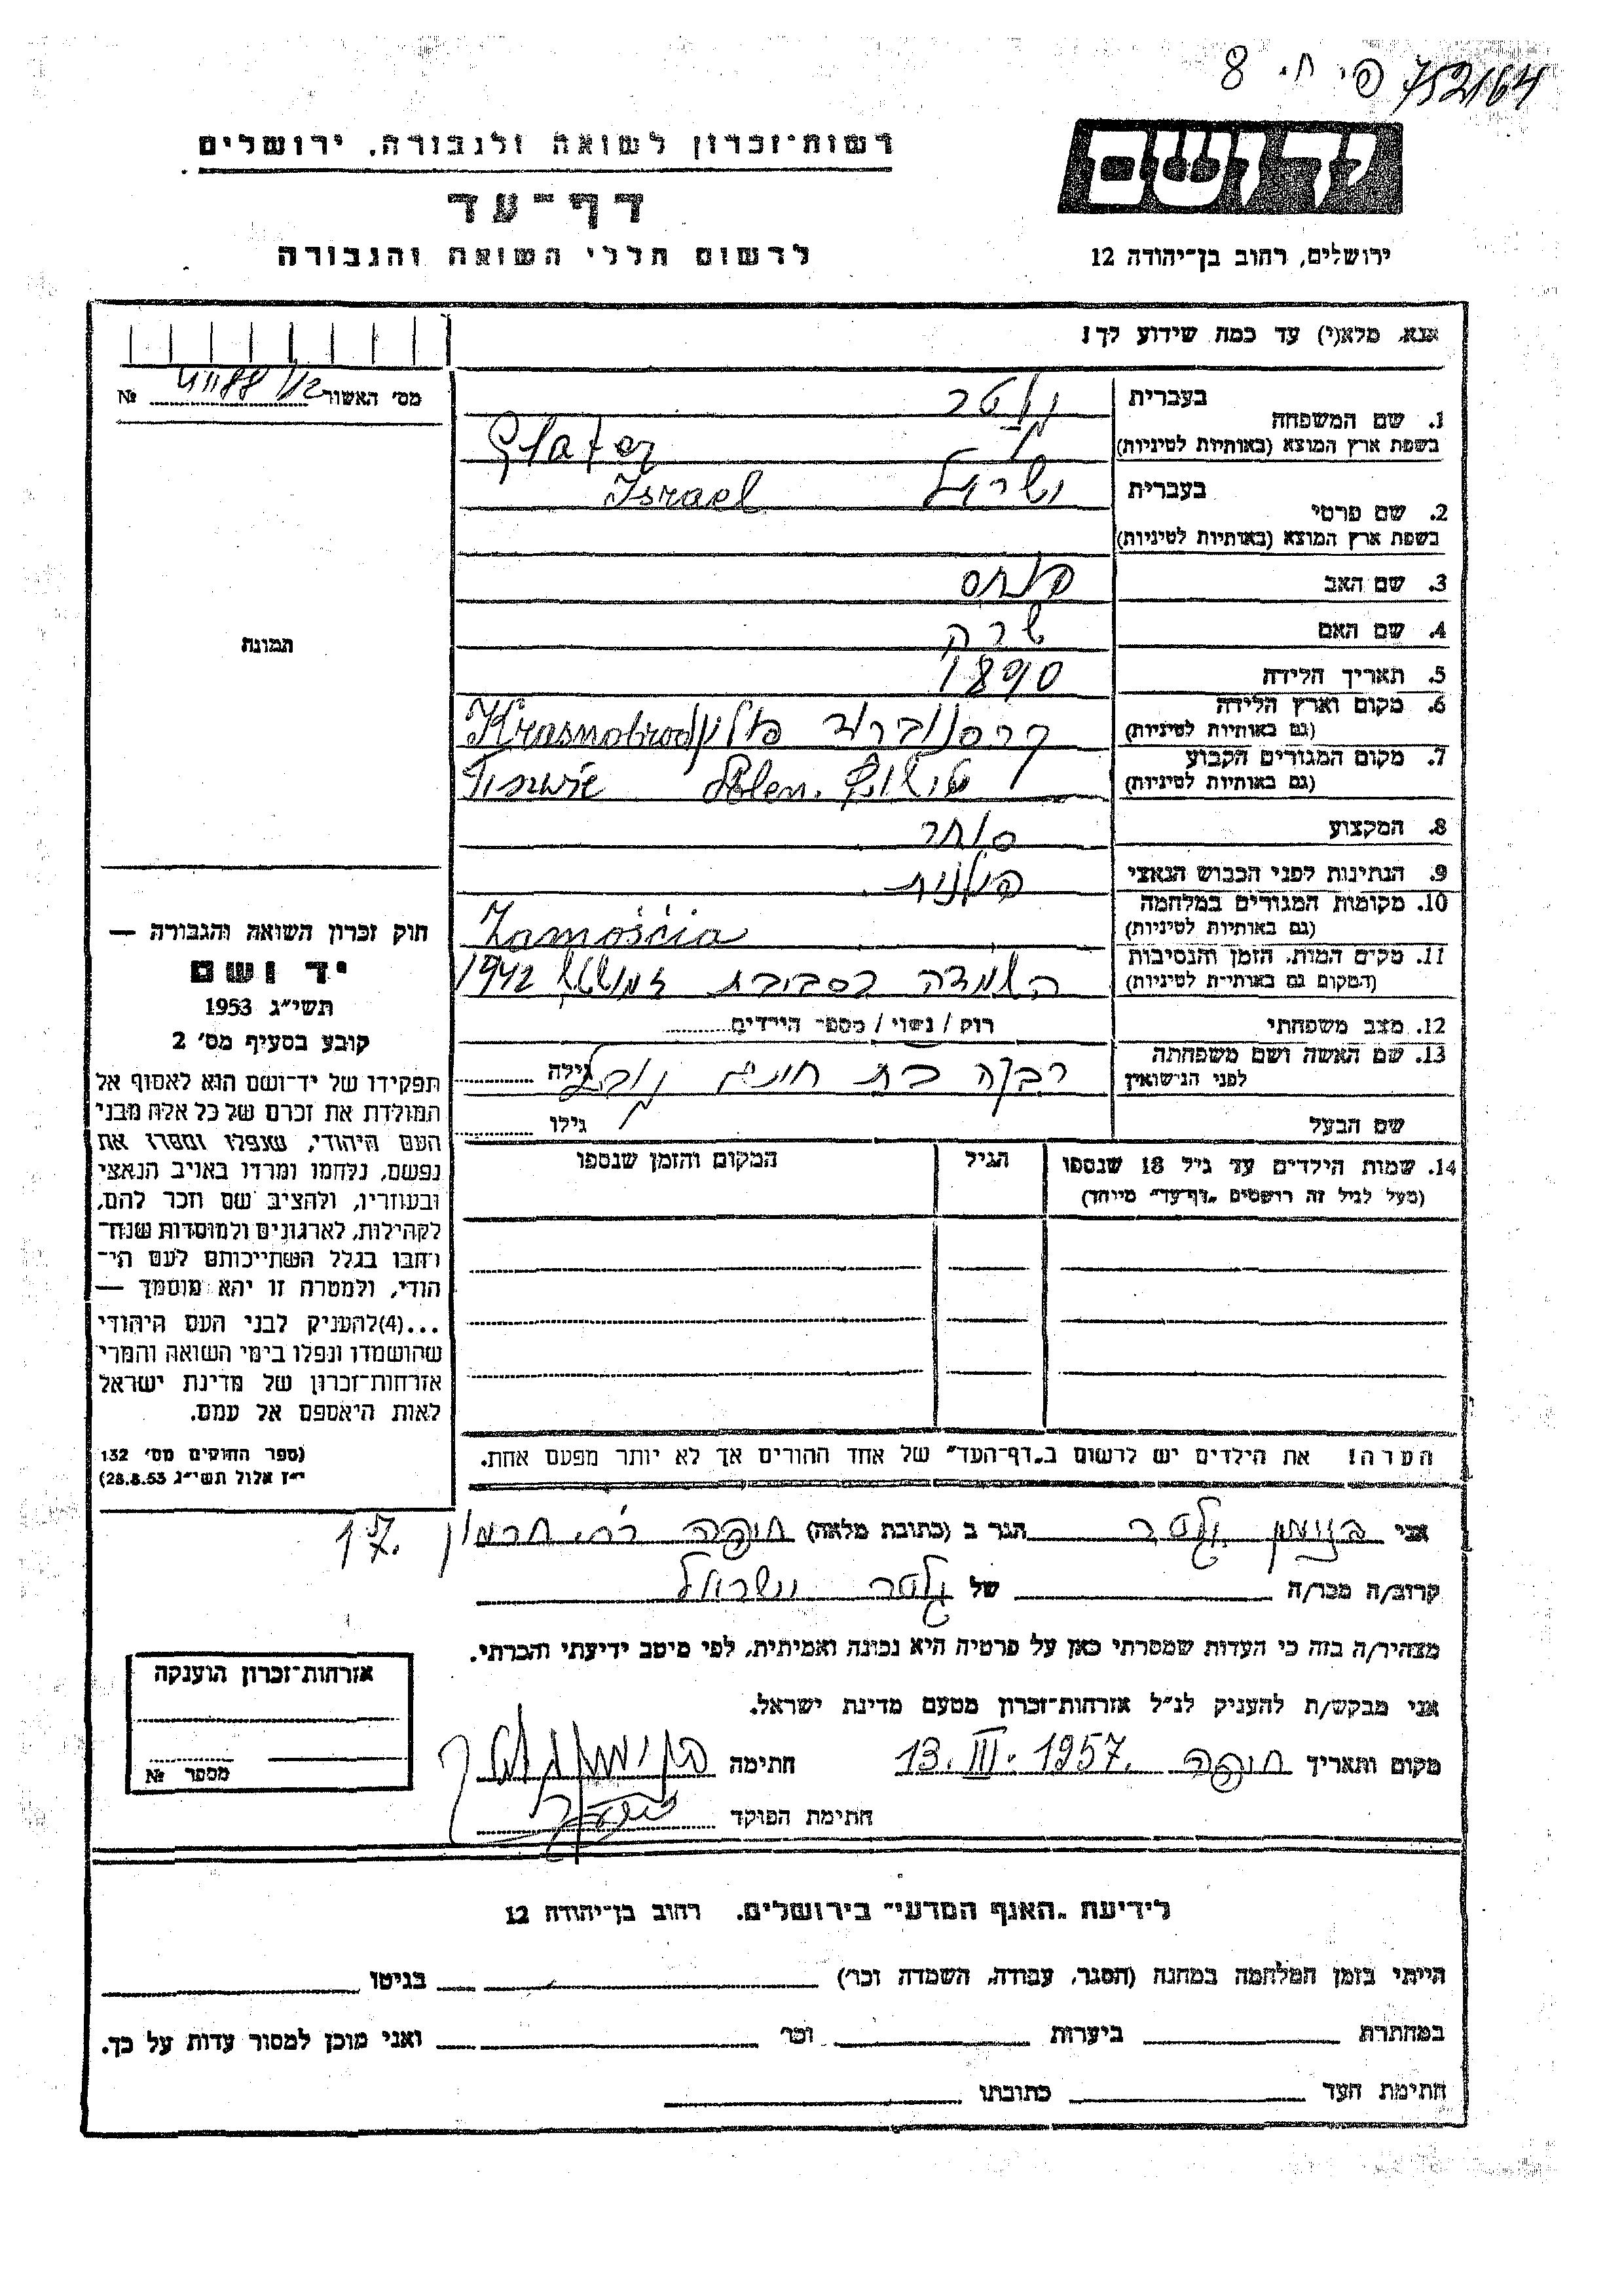 752/64 פי ח. 8
יד ושם
ירושלים, רחוב בן־יהודה 12
רשות־זכרון לשואה ולגבורה, ירושלים
דף־עד
לרשום חללי השואה והגבורה
אנא, מלא(י) עד כמה שידוע לך!
מס' האשור № 
1. שם המשפחה
בעברית
בשפת ארץ המוצא (באותיות לטיניות) Glater
2. שם פרטי
בעברית ישראל Israel
בשפת ארץ המוצא (באותיות לטיניות)
3. שם האב פנחס
4. שם האם שרה
5. תאריך הלידה 1890
6. מקום וארץ הלידה
(גם באותיות לטיניות) קרסנוברוד פולין Krasnobrod
7. מקום המגורים הקבוע
(גם באותיות לטיניות)
8. המקצוע סוחר
9. הנתינות לפני הכבוש הנאצי פולנית
10. מקומות המגורים במלחמה
(גם באותיות לטיניות) Zamościa
11. מקום המות, הזמן והנסיבות
(המקום גם באותיות לטיניות) השמדה בסביבת 1942
12. מצב משפחתי רוק / נשוי / מספר הילדים
13. שם האשה ושם משפחתה
לפני הנישואין רבקה בת גילה
שם הבעל גילו
14. שמות הילדים עד גיל 18 שנספו
(מעל לגיל זה רושמים „דף־עד" מיוחד)
הגיל
המקום והזמן שנספו
הערה! את הילדים יש לרשום ב„דף־העד" של אחד ההורים אך לא יותר מפעם אחת.
תמונה
חוק זכרון השואה והגבורה —
יד ושם
תשי"ג 1953
קובע בסעיף מס' 2
תפקידו של יד־ושם הוא לאסוף אל
המולדת את זכרם של כל אלה מבני
העם היהודי, שנפלו ומסרו את
נפשם, נלחמו ומרדו באויב הנאצי
ובעוזריו, ולהציב שם וזכר להם,
לקהילות, לארגונים ולמוסדות שנח־
רחבו בגלל השתייכותם לעם הי־
הודי, ולמטרה זו יהא מוסמך —
...(4)להעניק לבני העם היהודי
שהושמדו ונפלו בימי השואה והמרי
אזרחות־זכרון של מדינת ישראל
לאות היאספם אל עמם.
(ספר החוקים מס' 132
י"ז אלול תשי"ג 28.8.53)
אני בנימין גלטר הגר ב (כתובת מלאה) חיפה רח' חרמון 17.
קרוב/ה מכר/ה של גלטר ישראל
מצהיר/ה בזה כי העדות שמסרתי כאן על פרטיה היא נכונה ואמיתית, לפי מיטב ידיעתי והכרתי.
אני מבקש/ת להעניק לנ"ל אזרחות־זכרון מטעם מדינת ישראל.
מקום ותאריך חיפה 13. III. 1957. חתימה בנימין גלטר
חתימת הפוקד
אזרחות־זכרון הוענקה
מספר №
לידיעת „האגף המדעי" בירושלים. רחוב בן־יהודה 12
הייתי בזמן המלחמה במחנה (הסגר, עבודה, השמדה וכו') בגיטו
במחתרת ביערות וכו' ואני מוכן למסור עדות על כך.
חתימת העד כתובתו